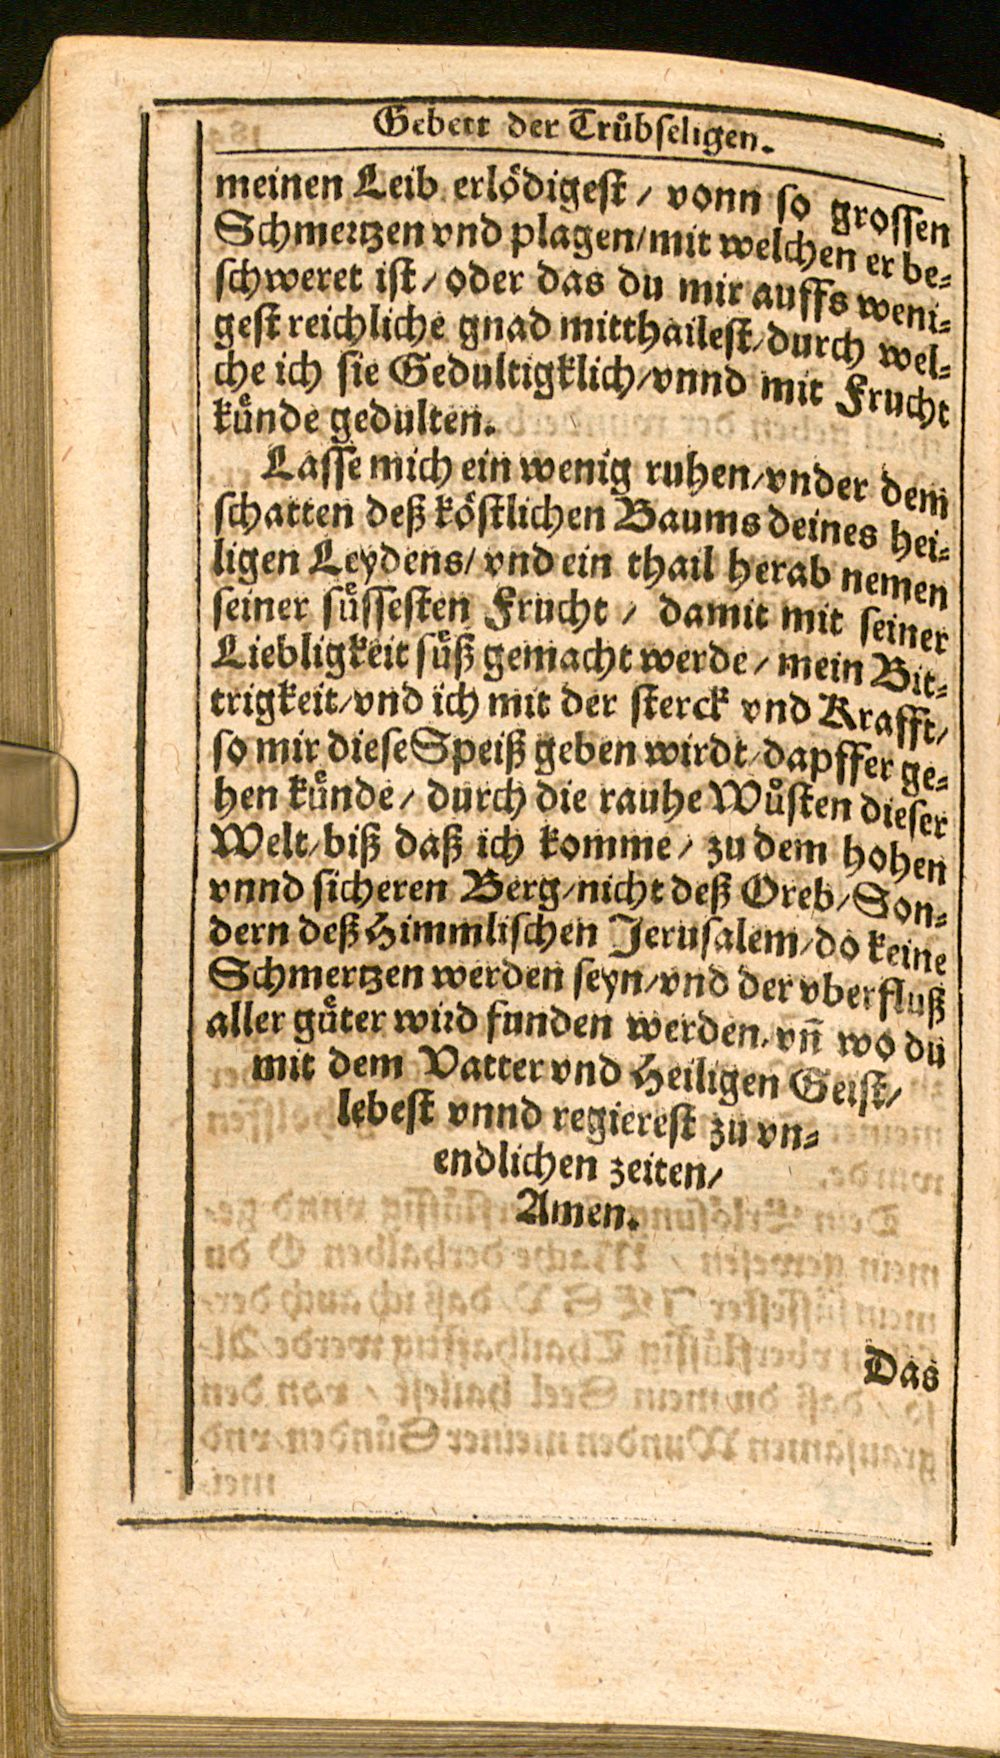 Gebett der Trůbseligen.
meinen Leib erlödigest / vonn so grossen
Schmertzen vnd plagen/mit welchen er be⸗
schweret ist / oder das du mir auffs weni⸗
gest reichliche gnad mitthailest/durch wel⸗
che ich sie Gedultigklich/vnnd mit Frucht
kůnde gedulten.
Lasse mich ein wenig ruhen/vnder dem
schatten deß köstlichen Baums deines hei⸗
ligen Leydens/ vnd ein thail herab nemen
seiner sůssesten Frucht / damit mit seiner
Liebligkeit sůß gemacht werde / mein Bit⸗
trigkeit/vnd ich mit der sterck vnd Krafft/
so mir diese Speiß geben wirdt/dapffer ge⸗
hen kůnde / durch die rauhe Wůsten dieser
Welt/biß daß ich komme / zu dem hohen
vnnd sicheren Berg/nicht deß Oreb/Son⸗
dern deß Himmlischen Jerusalem/do keine
Schmertzen werden seyn/vnd der vberfluß
aller gůter wird funden werden/vñ wo du
mit dem Vatter vnd Heiligen Geist/
lebest vnnd regierest zu vn⸗
endlichen zeiten/
Amen.
Das